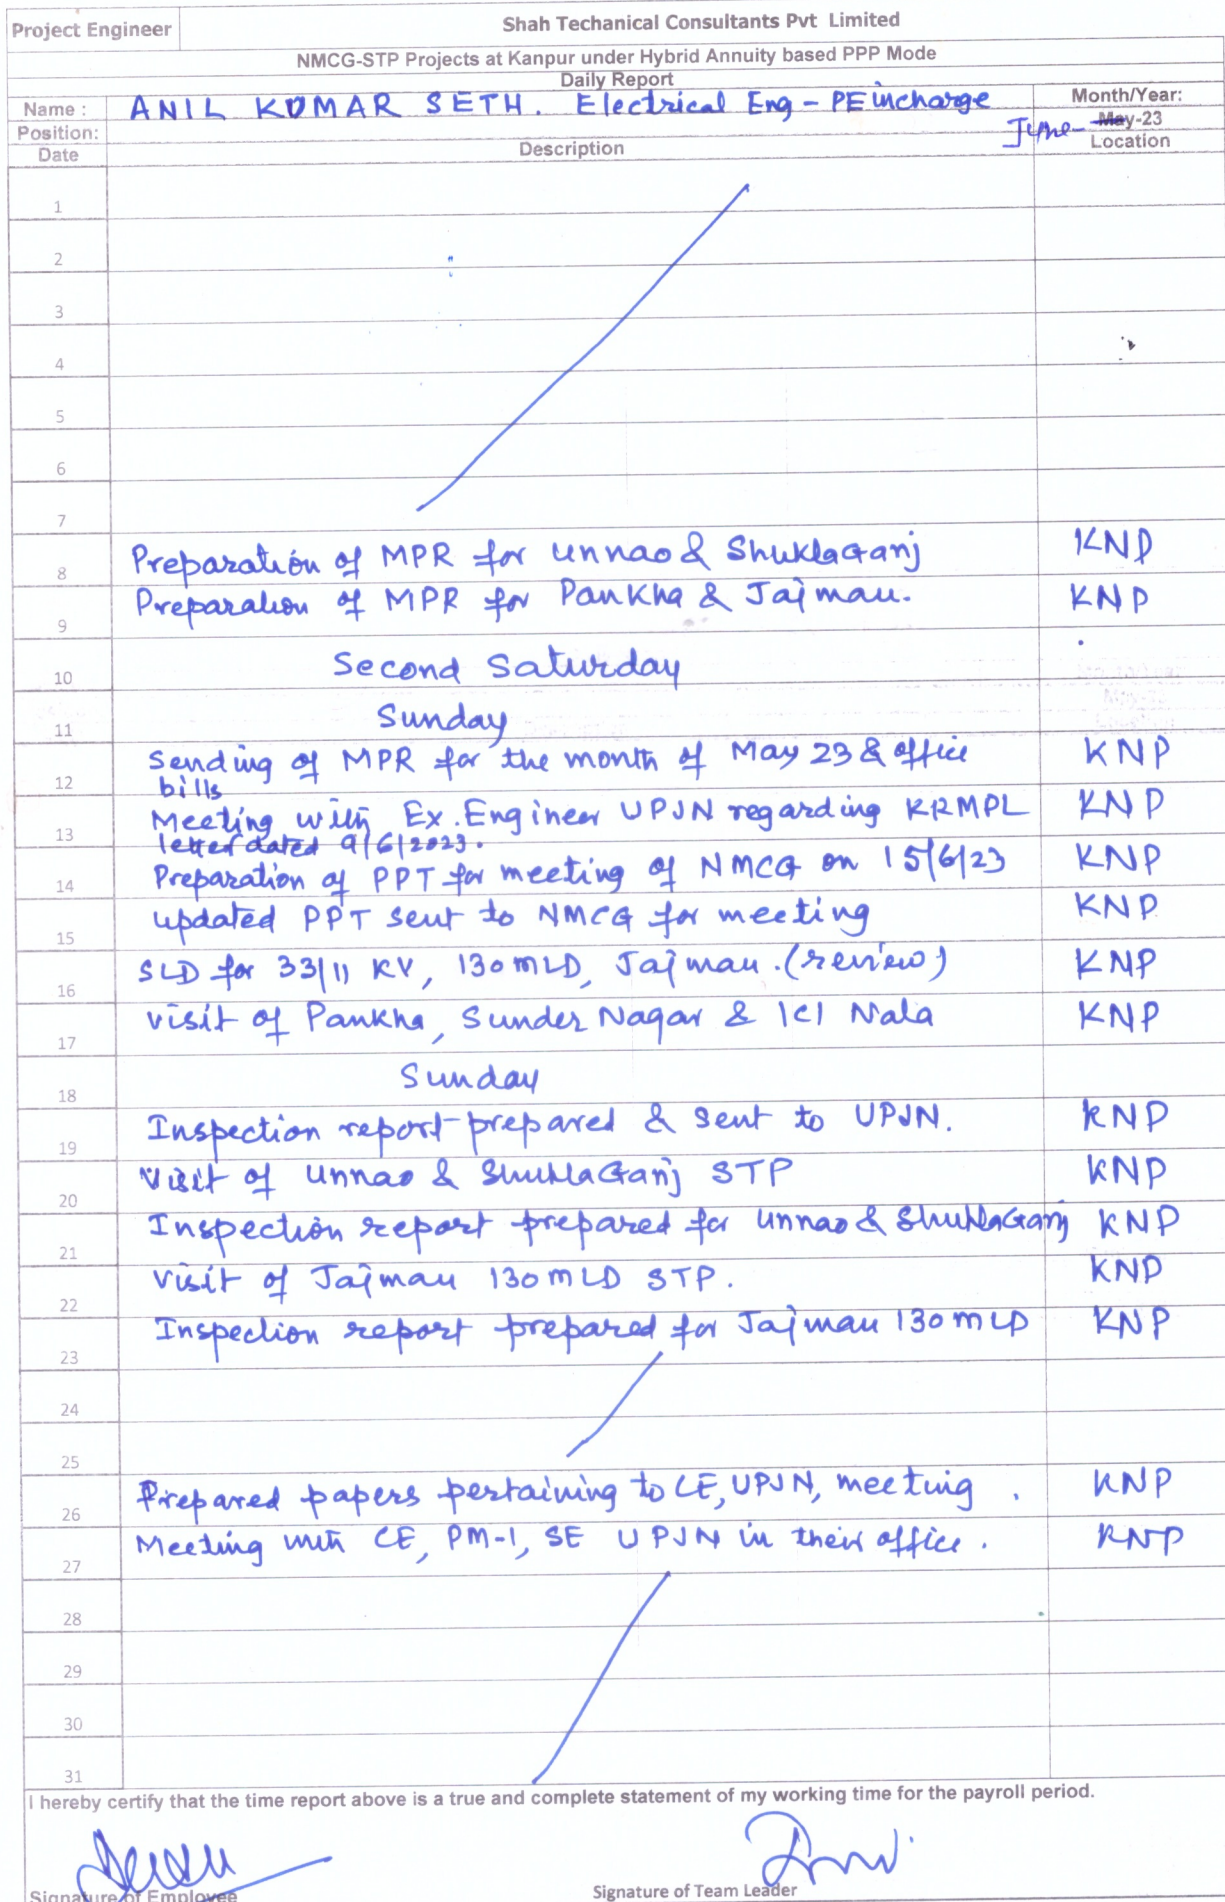 Project Engineer
Shah Techanical Consultants Pvt Limited
NMCG-STP Projects at Kanpur under Hybrid Annuity based PPP Mode
Daily Report
Name : ANIL KUMAR SETH. Electrical Eng - PE incharge
Month/Year:
Position:
June- May-23
Date Description Location
1
2
3
4
5
6
7
8 Preparation of MPR for Unnao & ShuklaGanj KNP
9 Preparation of MPR for Pankha & Jajmau. KNP
10 Second Saturday
11 Sunday
12 Sending of MPR for the month of May 23 & office KNP
bills
13 Meeting with Ex. Engineer UPJN regarding KRMPL KNP
letter dated 9/6/2023.
14 Preparation of PPT for meeting of NMCG on 15/6/23 KNP
15 updated PPT sent to NMCG for meeting KNP
16 SLD for 33/11 KV, 130 MLD, Jajmau. (review) KNP
17 visit of Pankha, Sunder Nagar & ICI Nala KNP
18 Sunday
19 Inspection report prepared & sent to UPJN. KNP
20 Visit of Unnao & ShuklaGanj STP KNP
21 Inspection report prepared for Unnao & ShuklaGanj KNP
22 Visit of Jajmau 130 MLD STP. KNP
23 Inspection report prepared for Jajmau 130 MLD KNP
24
25
26 Prepared papers pertaining to CE, UPJN, meeting. KNP
27 Meeting with CE, PM-1, SE UPJN in their office. KNP
28
29
30
31
I hereby certify that the time report above is a true and complete statement of my working time for the payroll period.
Signature of Employee
Signature of Team Leader